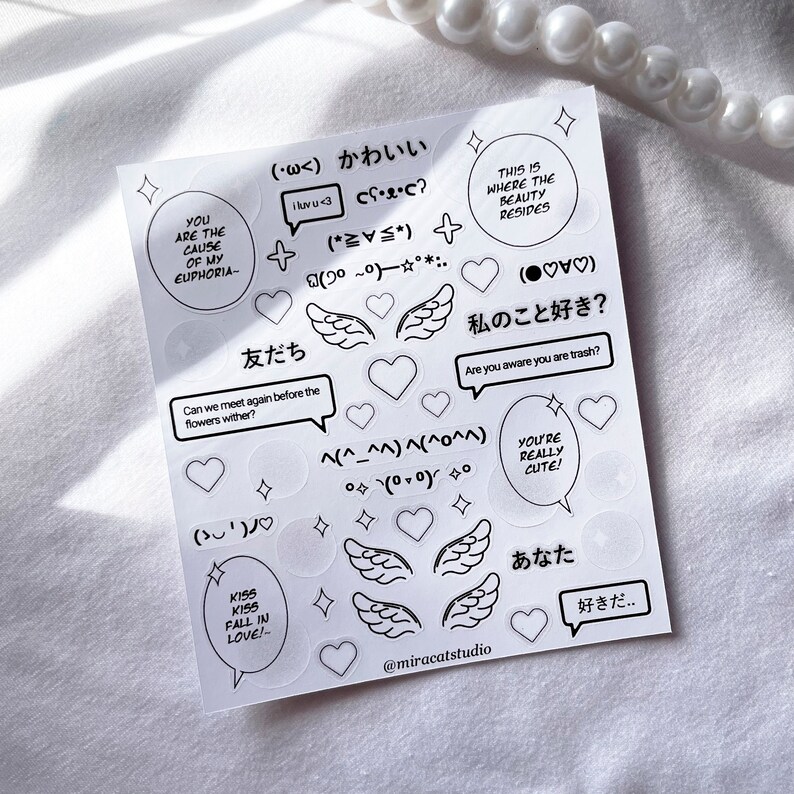 (·ω<) かわいい
i luv u <3
⊂ʕ•ᴥ•⊂ʔ
THIS IS
WHERE THE
BEAUTY
RESIDES
YOU
ARE THE
CAUSE
OF MY
EUPHORIA~
(*≧∀≦*)
(●♡∀♡)
私のこと好き?
友だち
Are you aware you are trash?
Can we meet again before the
flowers wither?
ヘ(^_^ヘ) ヘ(^o^ヘ)
YOU'RE
REALLY
CUTE!
あなた
KISS
KISS
FALL IN
LOVE!~
好きだ..
@miracatstudio